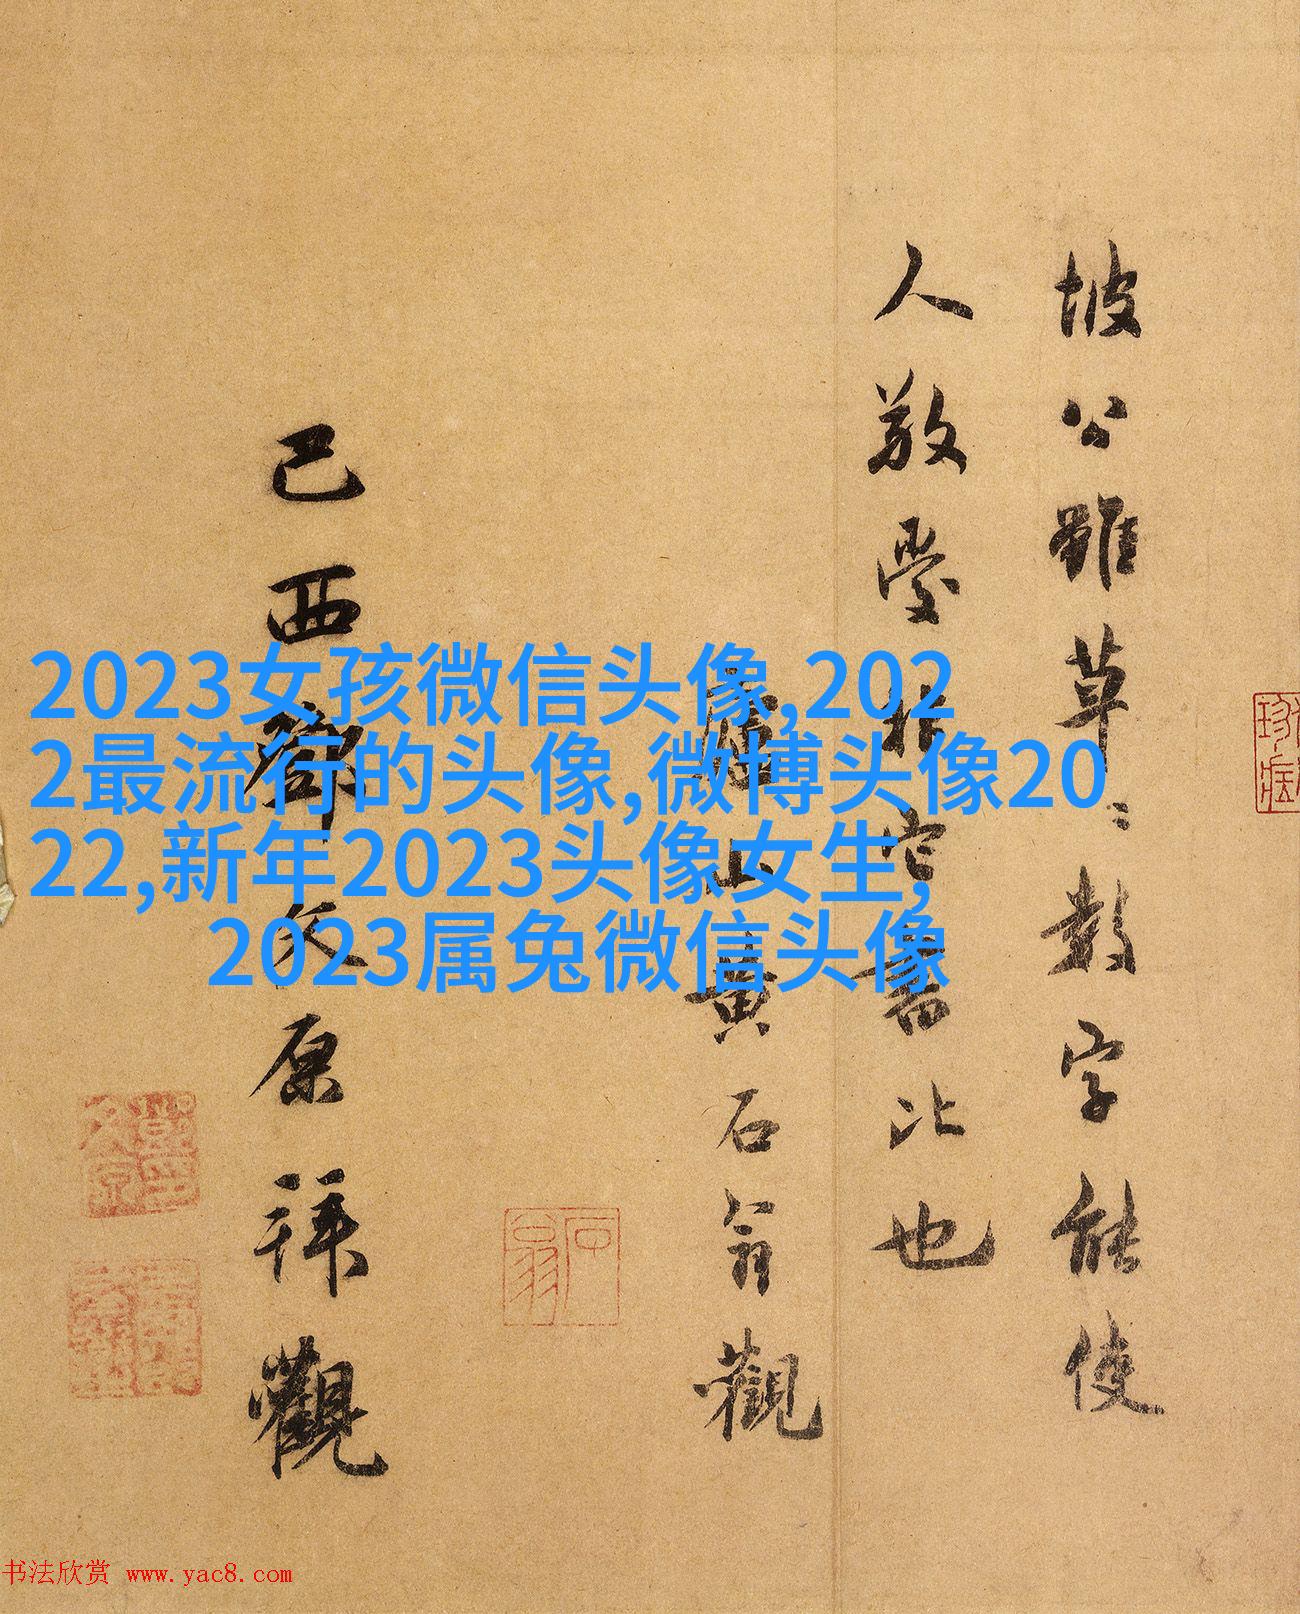 2023女孩微信头像,202
2最流行的头像,微博头像20
22,新年2023头像女生,
2023属兔微信头像
坡公雖草〻數字能使
人敬愛
書比也
山黄石翁觀
己酉鄧文原拜觀
石翁
书法欣赏 www.yac8.com